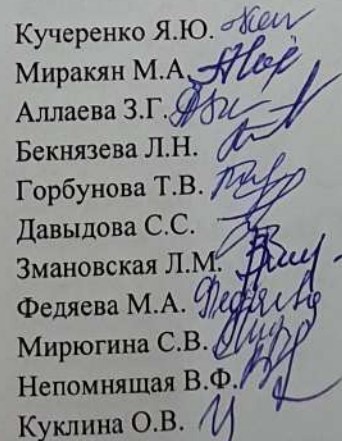 Кучеренко Я.Ю.
Миракян М.А.
Аллаева З.Г.
Бекнязева Л.Н.
Горбунова Т.В.
Давыдова С.С.
Змановская Л.М.
Федяева М.А. Федяева
Мирюгина С.В.
Непомнящая В.Ф.
Куклина О.В.